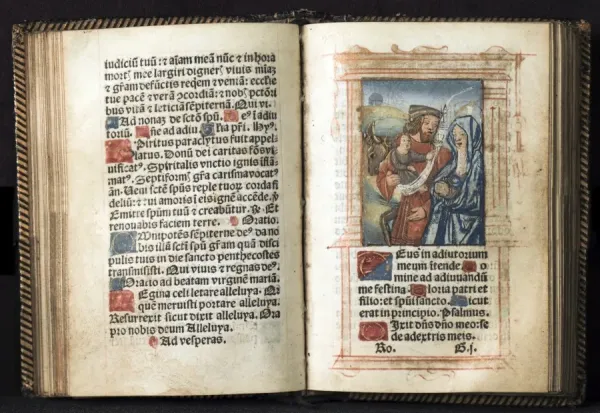 iudiciū tuū: ⁊ aīam meā nūc ⁊ in hora
mortꝭ mee largiri digneꝭ viuis mīaꝫ
⁊ gr̄am defūctis reqem ⁊ veniā: eccłie
tue pacē ⁊ verā ꝯcordiā: ⁊ nobꝭ pctōri
bus vitā ⁊ leticiā sēpiternā. Qui vi.
Ad nonaꝫ de sctō spū. Deꝰ ī adiu
toriū. Dn̄e ad adiu. Gl̄ia pr̄i. Hyꝰ.
Spiritus paraclytus fuit appel-
latus. Donū dei caritas fōs vi-
nificatꝰ. Spiritalis vnctio ignis iflā-
matꝰ. Septiformꝭ gr̄a carisma vocatꝰ
an. Veni sctē spūs reple tuoꝝ corda fi
deliū: ⁊ tui amoris ī eis ignē accēde. ℣
Emitte spūm tuū ⁊ creabūtur. ℟ Et
renouabis faciem terre. Oratio.
Omnipotēs sēpiterne deꝰ da no
bis illā sctī spūs gr̄am quā disci
pulis tuis in die sancto penthecostes
transmisisti. Qui viuis ⁊ regnas deꝰ.
Oratio ad beatam virginē mariā.
Regina celi letare alleluya. Qi
quē meruisti portare alleluya.
Resurrexit sicut dixit alleluya. Ora
pro nobis deum Alleluya.
Ad vesperas.
Deus in adiutorium
meum ītende. Do
mine ad adiuuandū
me festina. Gloria patri et
filio: et spūi sancto. Sicut
erat in principio. Psalmus.
Dixit dn̄s dn̄o meo: se
de a dextris meis.
Ro. G.j.